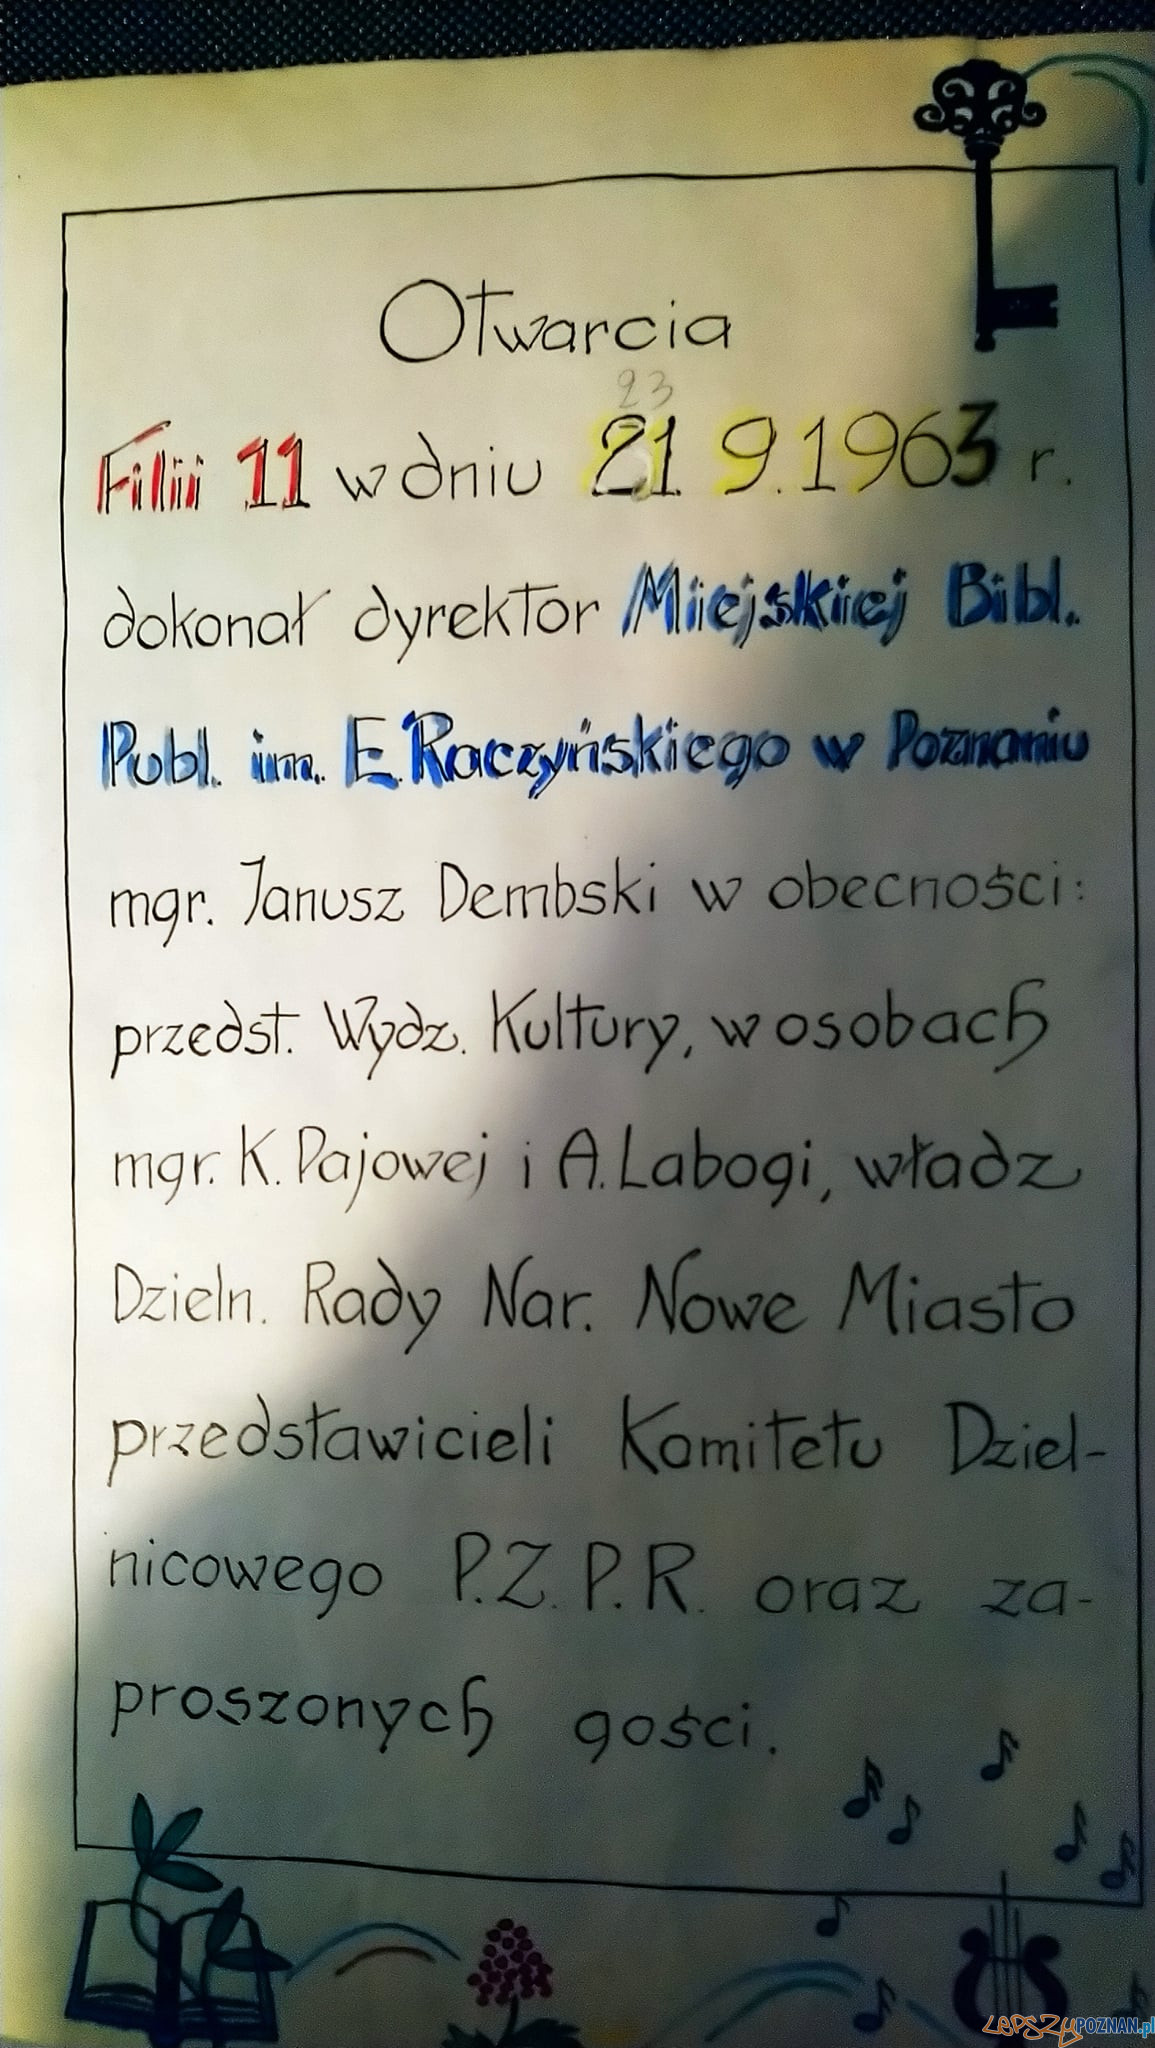 Otwarcia
23
Filii 11 w dniu 21 9.1963 r.
dokonał dyrektor Miejskiej Bibl.
Publ. im. E.Raczyńskiego w Poznaniu
mgr. Janusz Dembski w obecności:
przedst. Wydz. Kultury, w osobach
mgr. K. Pajowej i A. Labogi, władz
Dzieln. Rady Nar. Nowe Miasto
przedstawicieli Komitetu Dziel-
nicowego P.Z.P.R. oraz za-
proszonych gości.
LEPSZyPOZNAN.pl